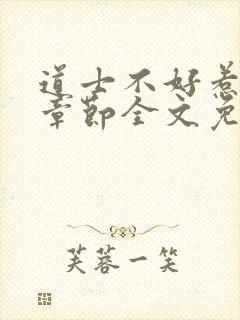 道士不好惹
章节全文免
芙蓉一笑